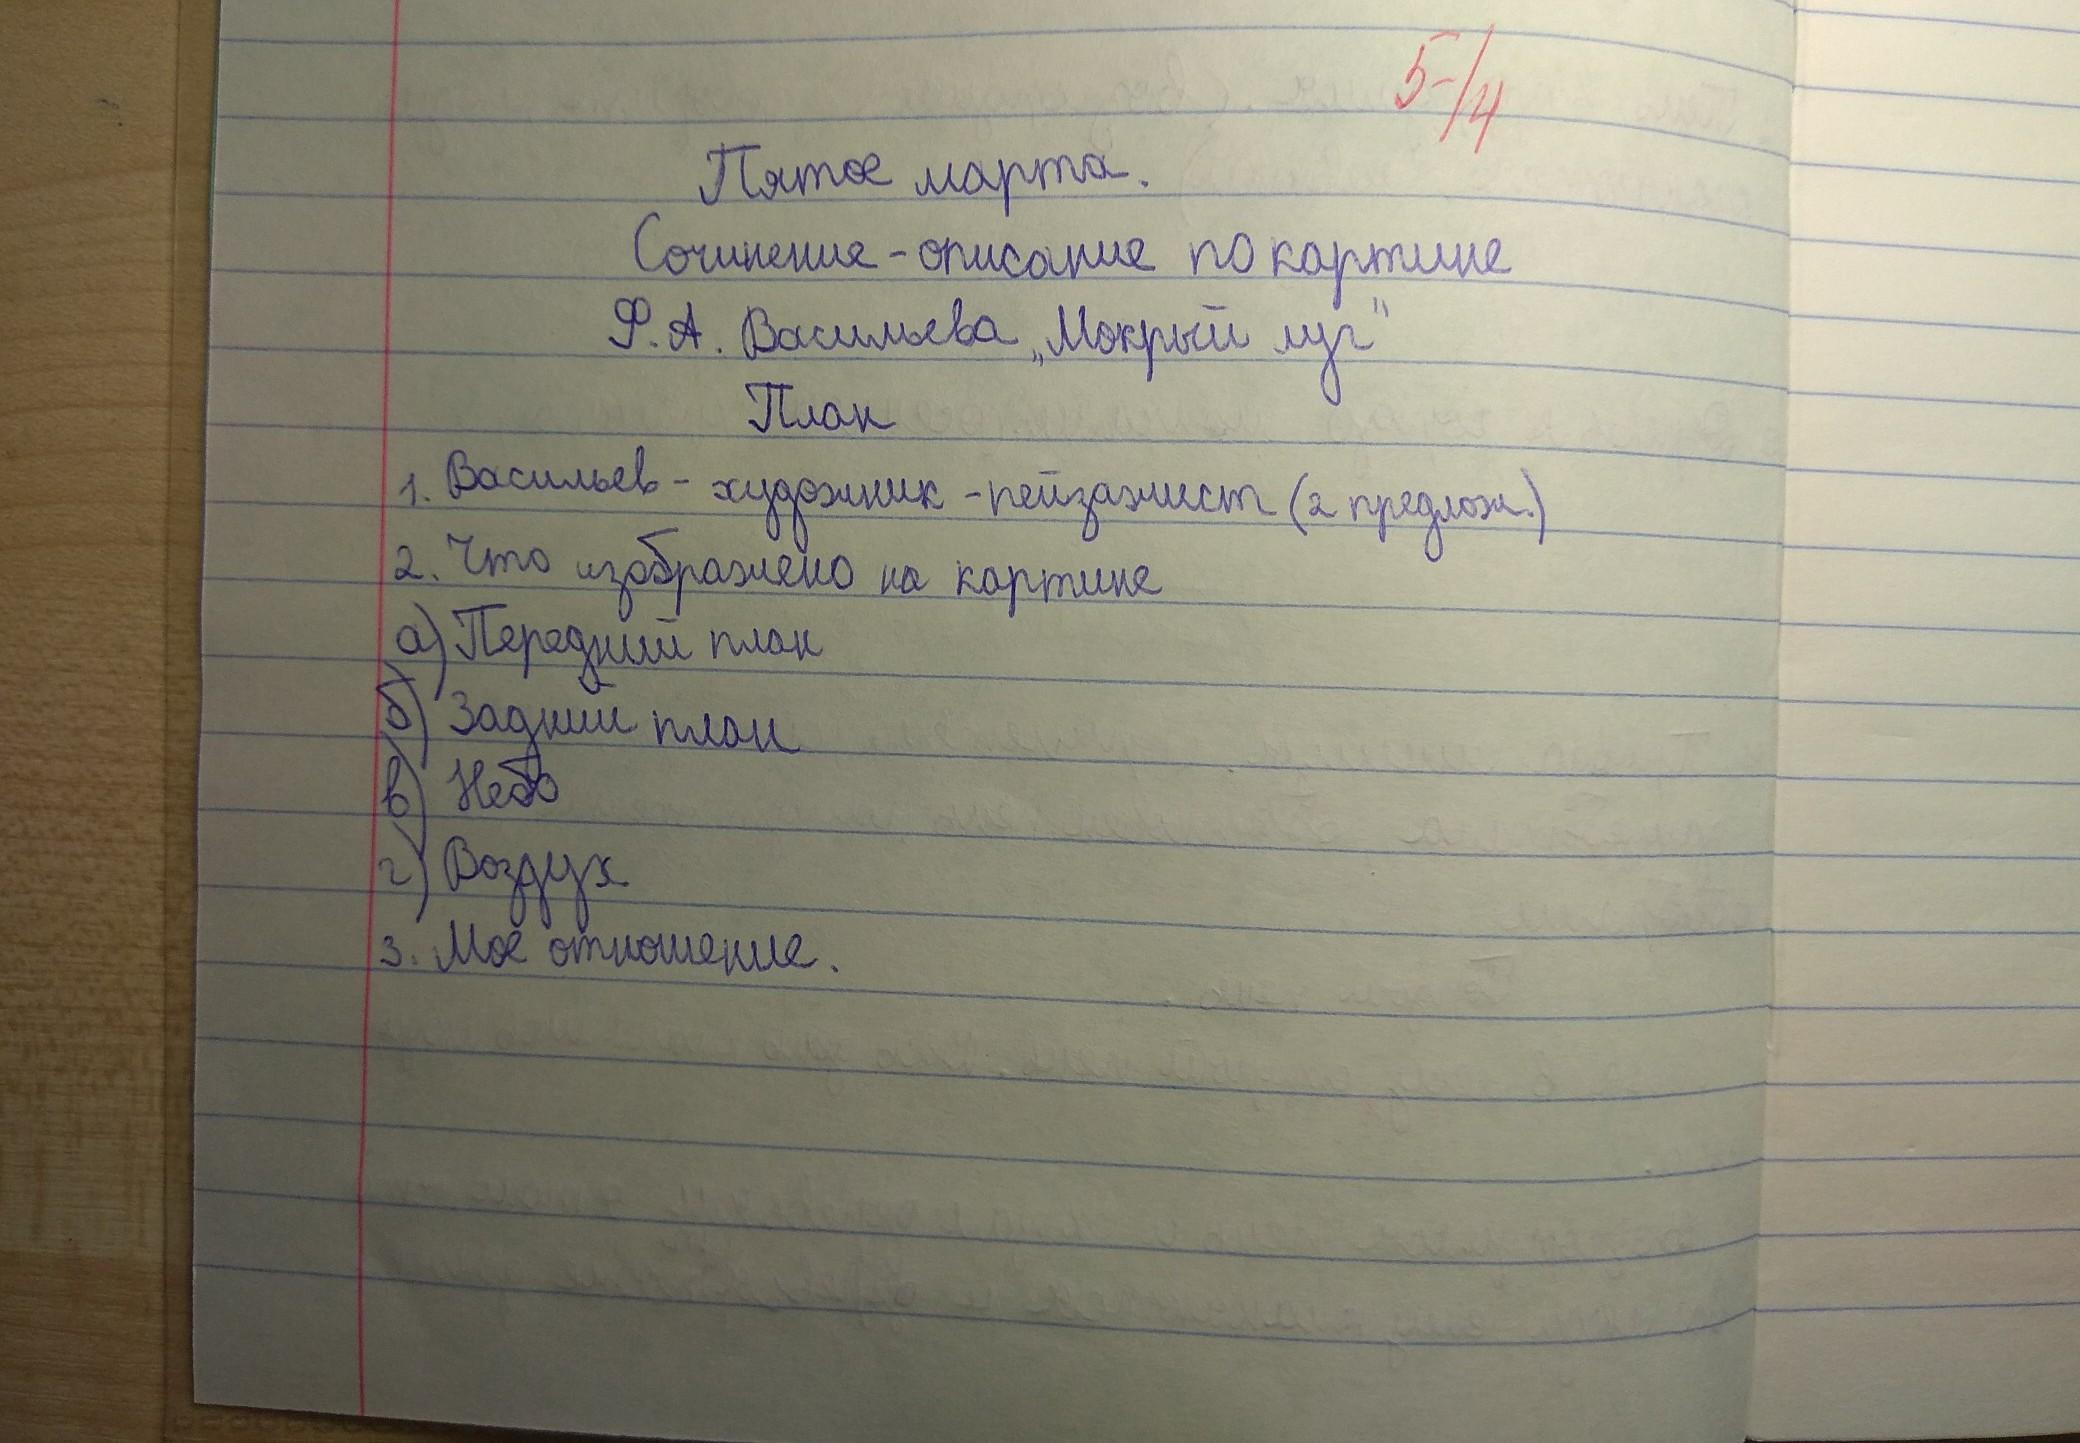 5-/4
Пятое марта.
Сочинение-описание по картине
Ф.А. Васильева „Мокрый луг"
План
1. Васильев - художник -пейзажист (2 предлож.)
2. Что изображено на картине
а) Передний план
б) Задний план
в) Небо
г) Воздух
3. Моё отношение.